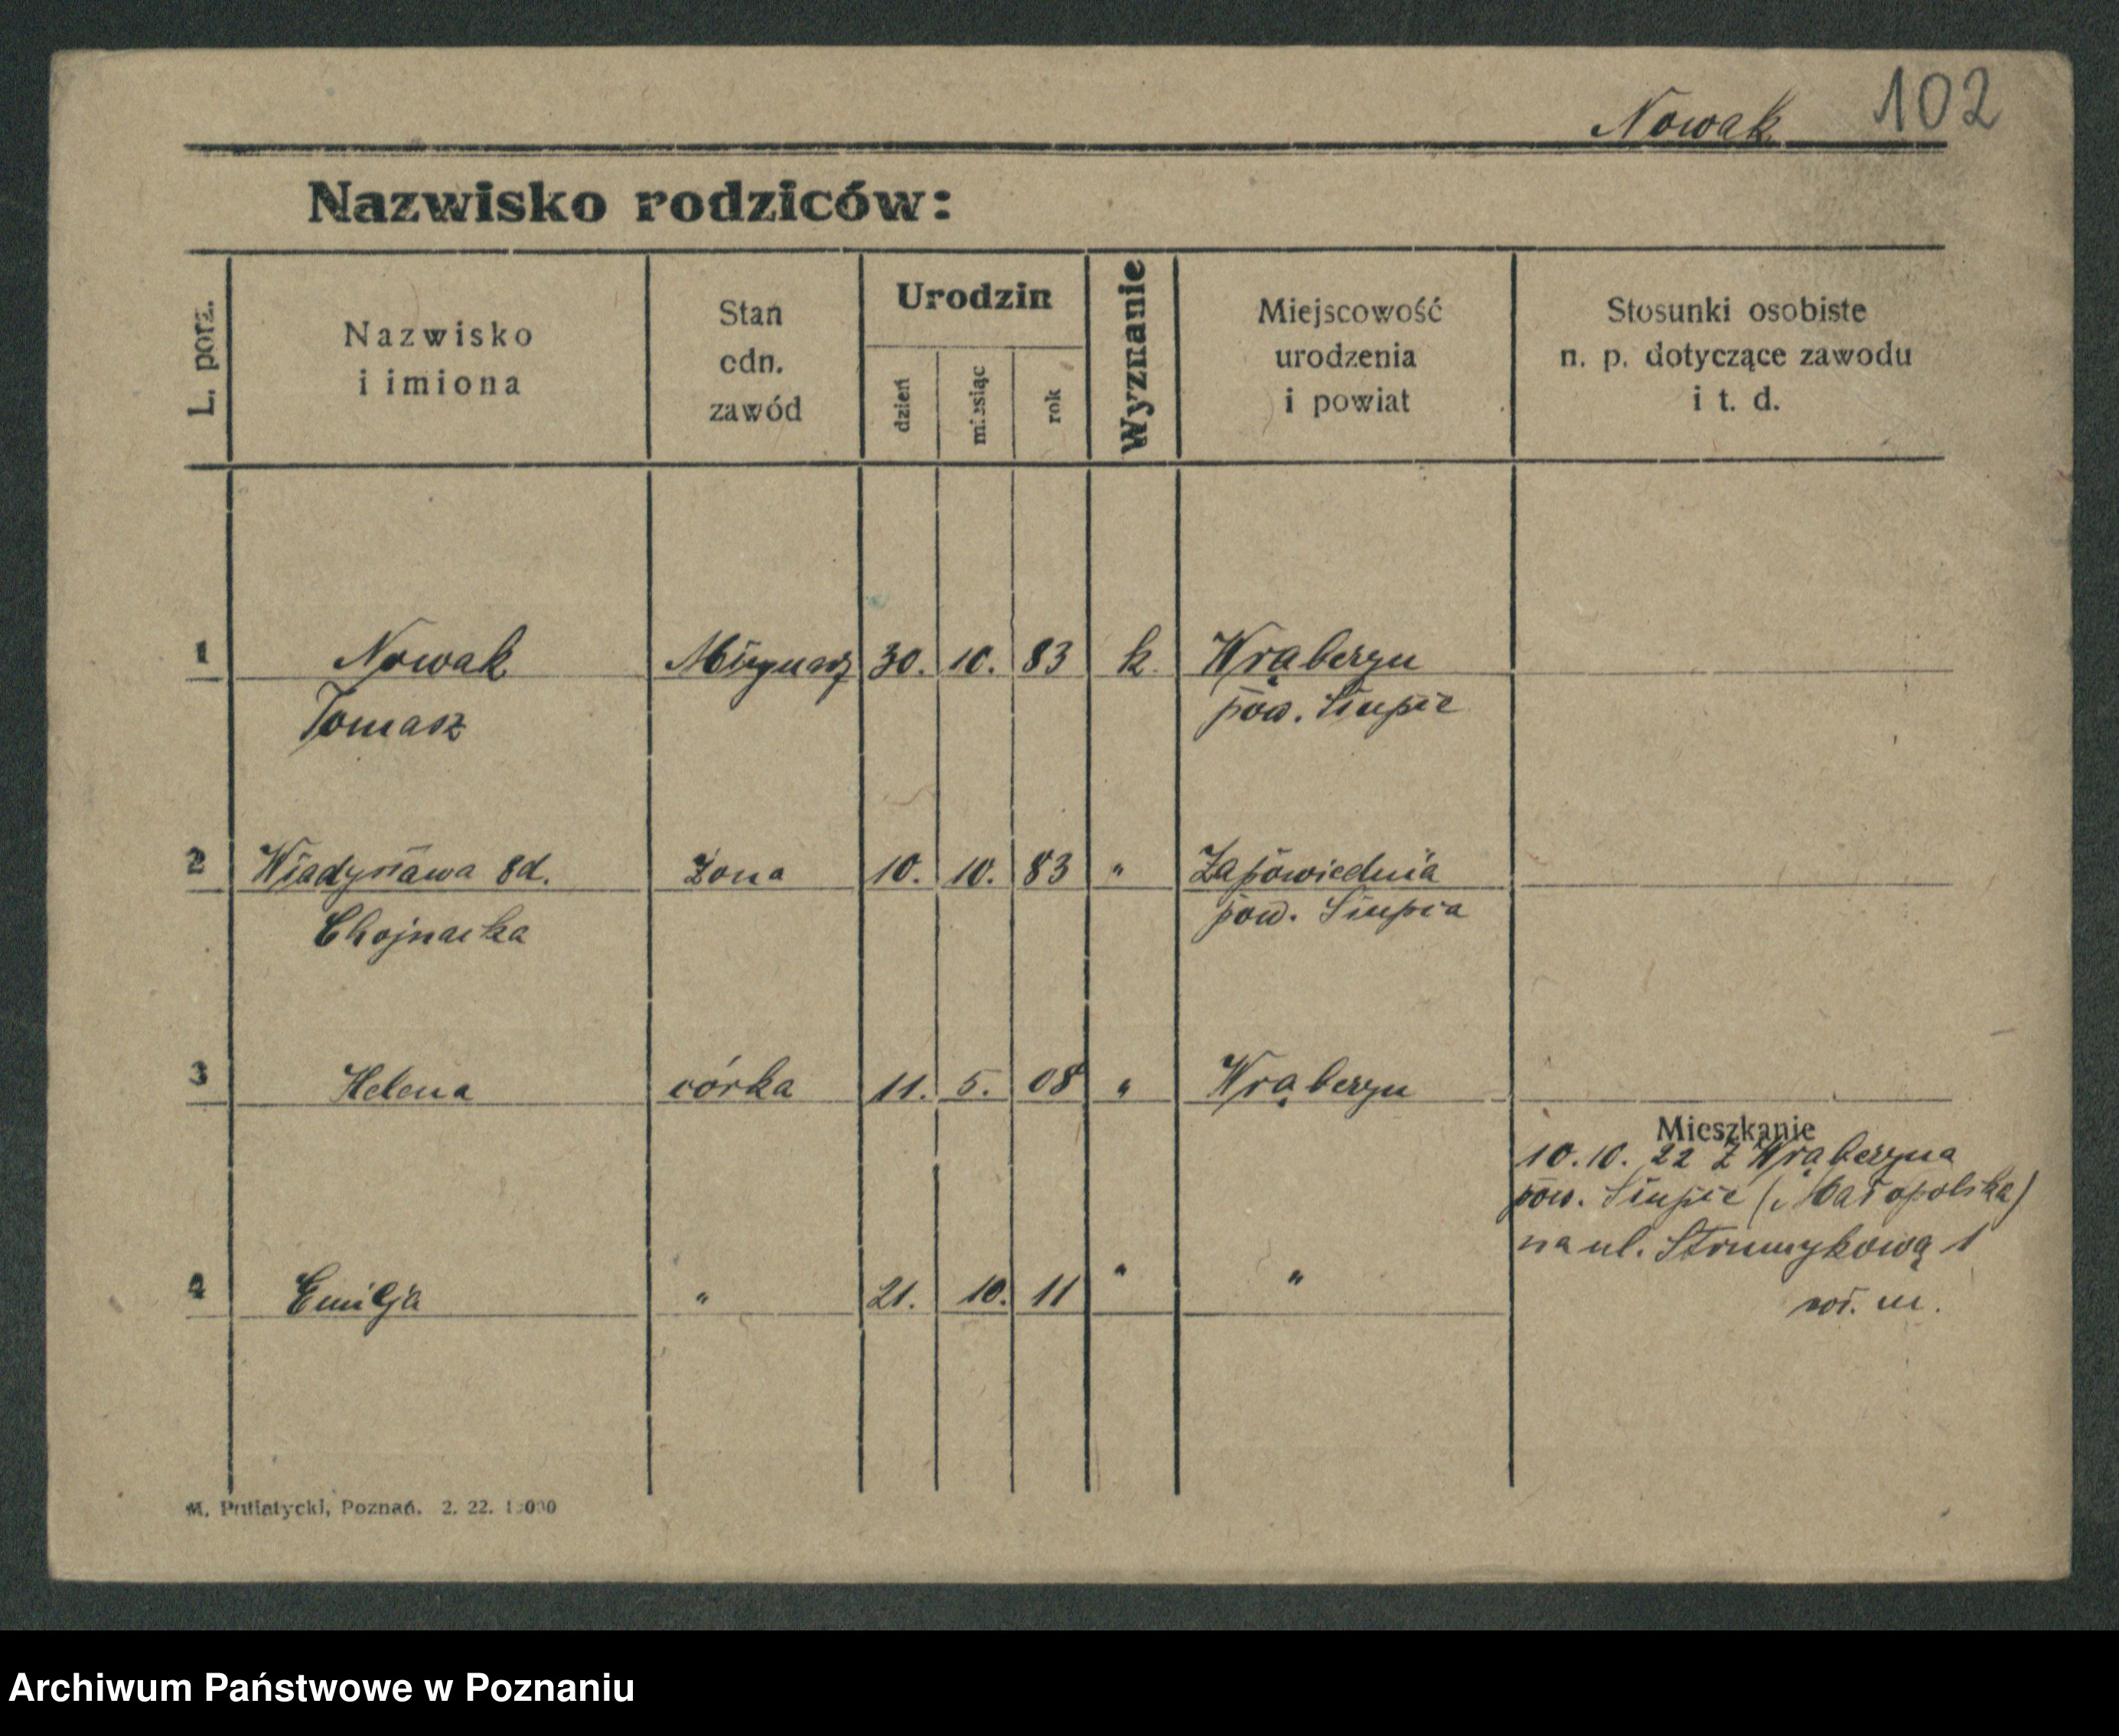 Nowak 102
Nazwisko rodziców:
L. porz.
Nazwisko
i imiona
Stan
odn.
zawód
Urodzin
dzień
miesiąc
rok
Wyznanie
Miejscowość
urodzenia
i powiat
Stosunki osobiste
n. p. dotyczące zawodu
i t. d.
1 Nowak Młynarz 30. 10. 83 k. Wrąberzyn
Tomasz pow. Słupie
2 Władysława żona 10. 10. 83 " Zapowiednia
Chojnacka pow. Słupca
3 Helena córka 11. 5. 08 " Wrąberzyn
Mieszkanie
10. 10. 22 z Wrąberzyna
pow. Słupie (Małopolska)
na ul. Strumykową 1
4 Emilja " 21. 10. 11 " "
M. Putiatycki, Poznań. 2. 22.
Archiwum Państwowe w Poznaniu